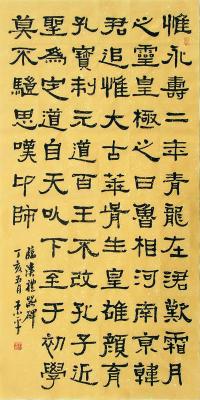 惟永壽二年青龍在涒歎霜月
之靈皇極之日魯相河南京韓
君追惟大古華胥生皇雄顏育
孔寶制元道百王不改孔子近
聖為定道自天以下至于初學
莫不驥思嘆卬師
臨漢禮器碑
丁亥五月